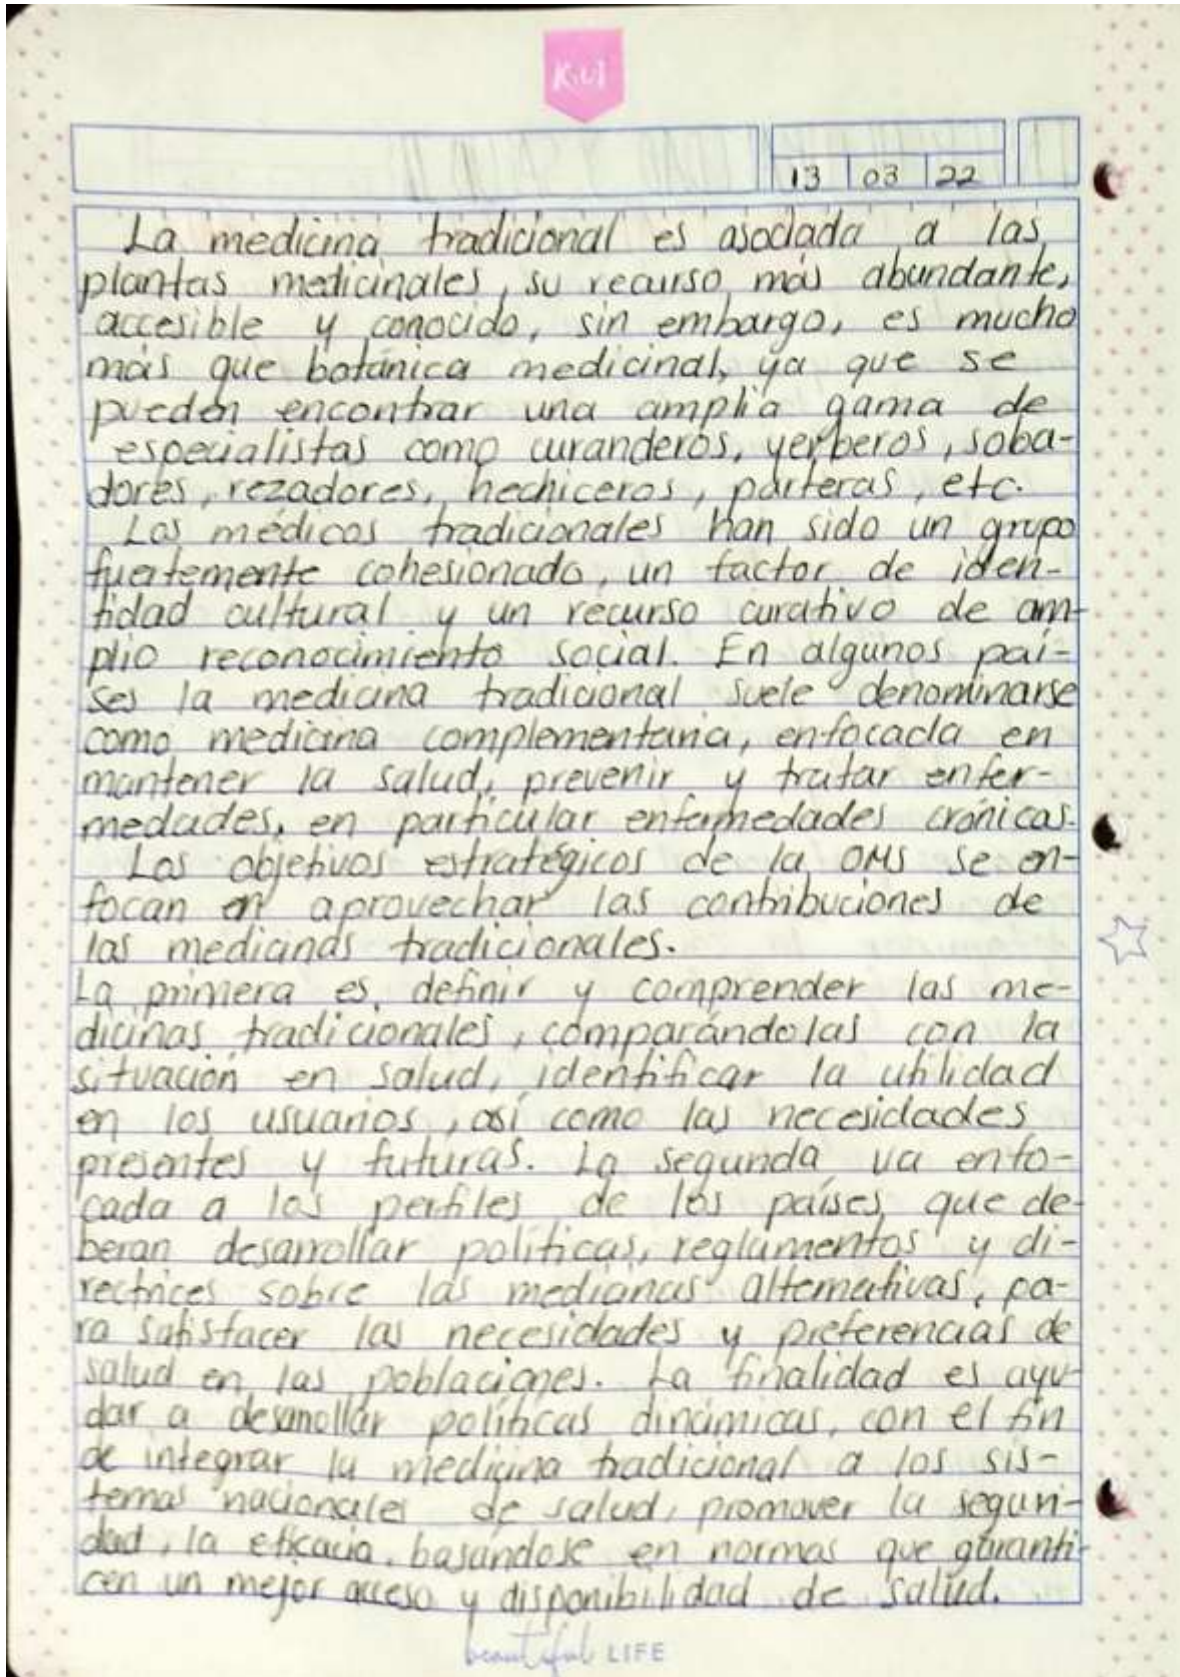 Kiwi
13 03 22
La medicina tradicional es asociada a las
plantas medicinales, su recurso más abundante,
accesible y conocido, sin embargo, es mucho
más que botánica medicinal, ya que se
pueden encontrar una amplia gama de
especialistas como curanderos, yerberos, soba-
dores, rezadores, hechiceros, parteras, etc.
Los médicos tradicionales han sido un grupo
fuertemente cohesionado, un factor de iden-
tidad cultural y un recurso curativo de am-
plio reconocimiento social. En algunos paí-
ses la medicina tradicional suele denominarse
como medicina complementaria, enfocada en
mantener la salud, prevenir y tratar enfer-
medades, en particular enfermedades crónicas.
Los objetivos estratégicos de la OMS se en-
focan en aprovechar las contribuciones de
las medicinas tradicionales.
La primera es definir y comprender las me-
dicinas tradicionales, comparándolas con la
situación en salud, identificar la utilidad
en los usuarios, así como las necesidades
presentes y futuras. La segunda va enfo-
cada a los perfiles de los países que de-
beran desarrollar políticas, reglamentos y di-
rectrices sobre las medicinas alternativas, pa-
ra satisfacer las necesidades y preferencias de
salud en las poblaciones. La finalidad es ayu-
dar a desarrollar políticas dinámicas, con el fin
de integrar la medicina tradicional a los sis-
temas nacionales de salud, promover la seguri-
dad, la eficacia, basandose en normas que garanti-
cen un mejor acceso y disponibilidad de salud.
beautiful LIFE